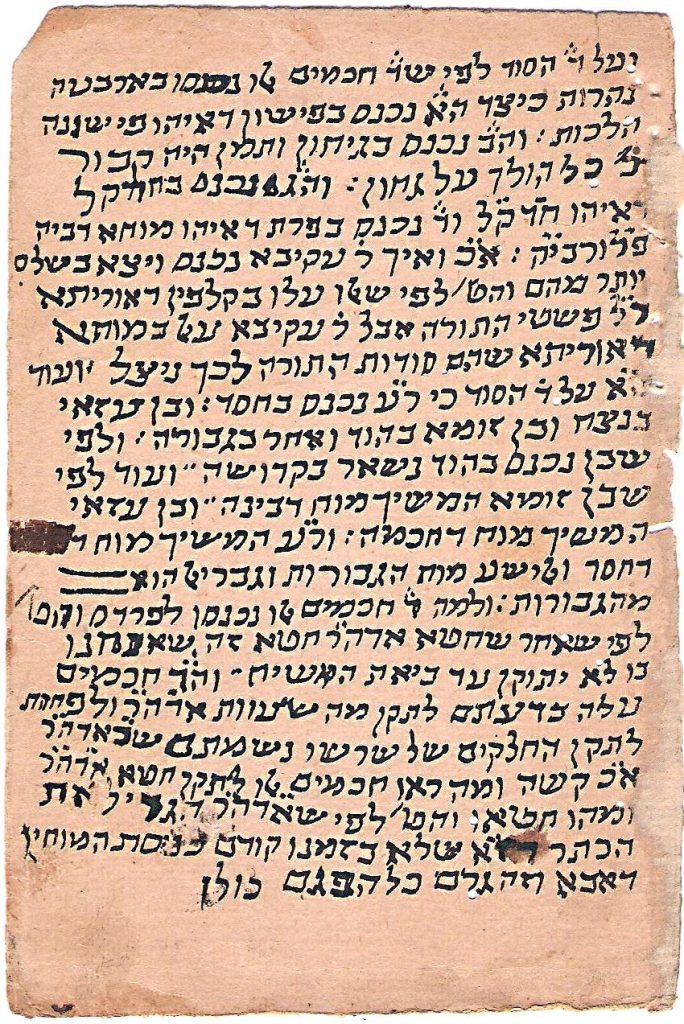 ועל ד׳ הסוד לפי שד׳ חכמים אלו נכנסו בארבעה
נהרות כיצד הא׳ נכנס בפישון דאיהו פי שונה
הלכות : והב׳ נכנס בגיחון ותמן היה קבור
כל הולך על גחון : והג׳ נכנס בחידקל
דאיהו חד קל וד׳ נכנס בפרת דאיהו מוחא דביה
פריה ורביה : א״כ ואיך ר׳ עקיבא נכנס ויצא בשלום
יותר מהם והט׳ לפי שאלו עלו בקלפין דאוריתא
ר״ל פשטי התורה אבל ר׳ עקיבא עלו במוחא
דאוריתא שהם סודות התורה לכך ניצל ועוד
על ד׳ הסוד כי ר״ע נכנס בחסד : ובן עזאי
בנצח ובן זומא בהוד ואחר בגבורה : ולפי
שבן נכנס בהוד נשאר בקדושה ״ ועוד לפי
שבן זומא המשיך מוח דבינה ״ ובן עזאי
המשיך מוח דחכמה : ור״ע המשיך מוח ד
דחסד ואלישע מוח הגבורות וגבריאל הוא
מהגבורות : ולמה ד׳ חכמים אלו נכנסו לפרדס והט׳
לפי שאחר שחטא אדה״ר חטא זה שאנחנו
בו לא יתוקן עד ביאת המשיח ״ והד׳ חכמים
עלה בדעתם לתקן מה שעוות אדה״ר ולפחות
לתקן החלקים של שרשו נשמתם שבאדה״ר
א״כ קשה ומה ראו חכמים אלו לתקן חטא אדה״ר
ומהו חטאו והט׳ לפי שאדה״ר את
הכתר שלא בזמנו קודם כניסת המוחין
דאבא וזה גלם כל הפגם כולן